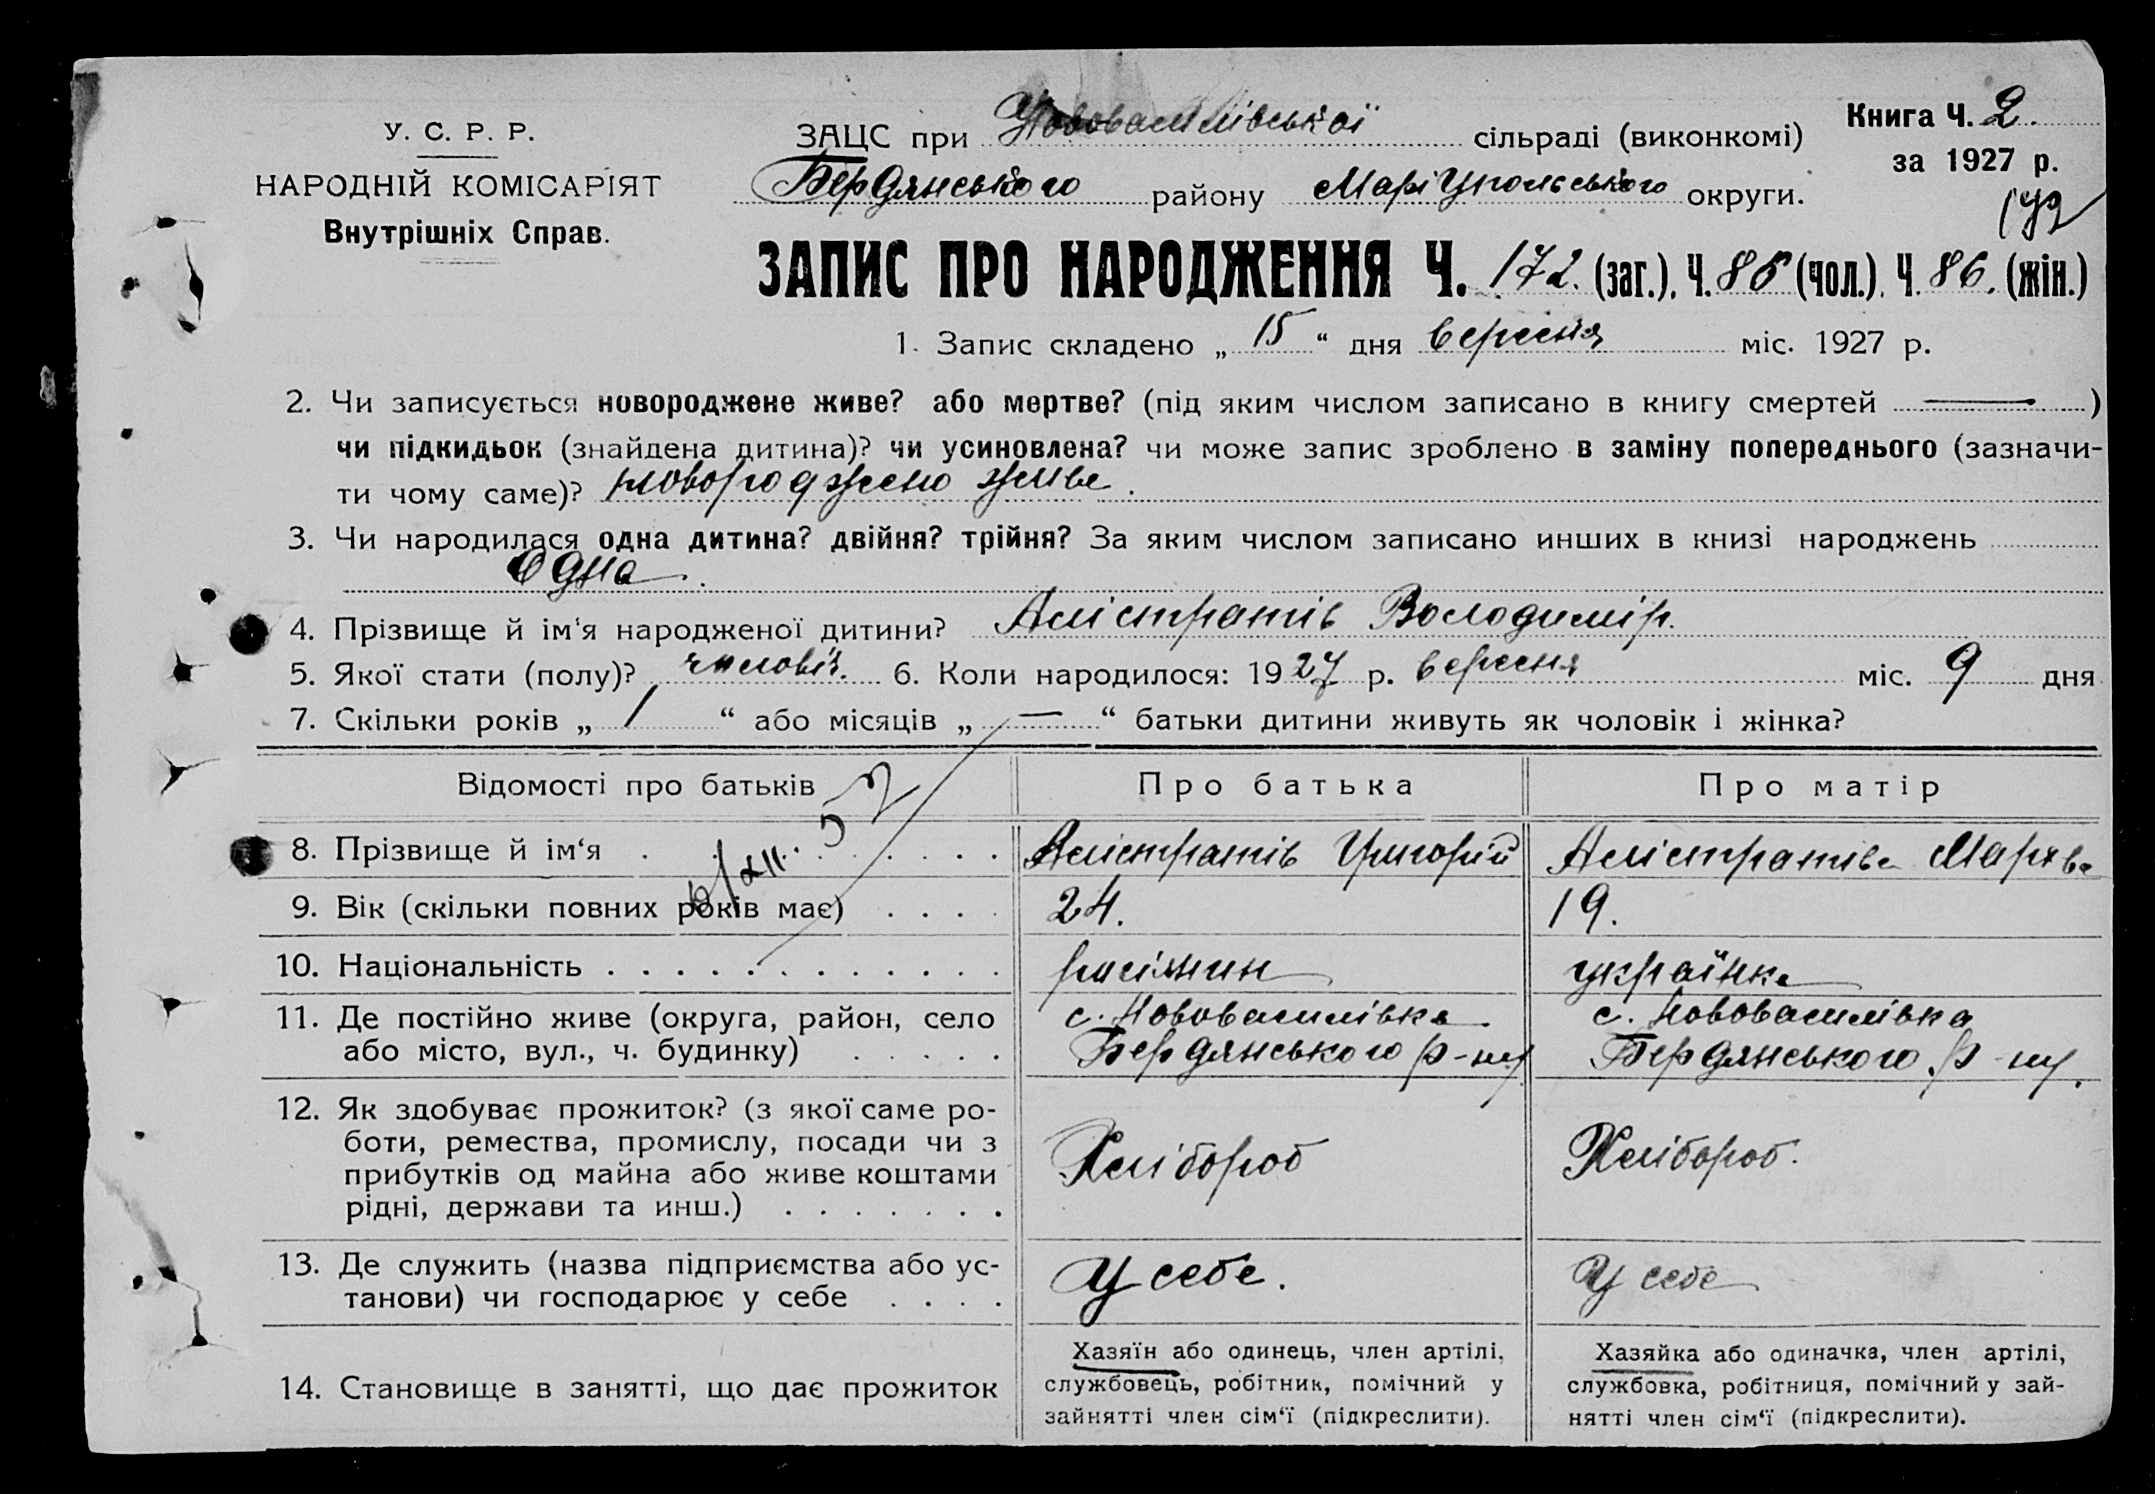 У. С. Р. Р.
НАРОДНІЙ КОМІСАРІЯТ
Внутрішніх Справ.
ЗАЦС при Нововасилівської сільраді (виконкомі)
Бердянського району Маріупольського округи.
Книга Ч. 2.
за 1927 р.
172
ЗАПИС ПРО НАРОДЖЕННЯ Ч. 172. (заг.), Ч. 86 (чол.), Ч. 86. (жін.)
1. Запис складено „ 15 “ дня вересня міс. 1927 р.
2. Чи записується новороджене живе? або мертве? (під яким числом записано в книгу смертей — )
чи підкидьок (знайдена дитина)? чи усиновлена? чи може запис зроблено в заміну попереднього (зазначи-
ти чому саме)? новороджено живе.
3. Чи народилася одна дитина? двійня? трійня? За яким числом записано инших в книзі народжень
Одна.
4. Прізвище й ім'я народженої дитини? Алістратів Володимір.
5. Якої стати (полу)? чоловіч. 6. Коли народилося: 1927 р. вересня міс. 9 дня
7. Скільки років „ 1 “ або місяців „ — “ батьки дитини живуть як чоловік і жінка?
Відомості про батьків Про батька Про матір
8. Прізвище й ім‘я Алістратів Григорій Алістратіва Мархва
9. Вік (скільки повних років має) 24. 19.
10. Національність росіянин українка
11. Де постійно живе (округа, район, село
або місто, вул., ч. будинку)
с. Нововасилівка
Бердянського р-ну
с. Нововасилівка
Бердянського р-ну.
12. Як здобуває прожиток? (з якої саме ро-
боти, ремества, промислу, посади чи з
прибутків од майна або живе коштами
рідні, держави та инш.)
Хлібороб
Хлібороб.
13. Де служить (назва підприємства або ус-
танови) чи господарює у себе
У себе.
У себе
14. Становище в занятті, що дає прожиток
Хазяїн або одинець, член артілі,
службовець, робітник, помічний у
зайнятті член сім‘ї (підкреслити).
Хазяйка або одиначка, член артілі,
службовка, робітниця, помічний у зай-
нятті член сім‘ї (підкреслити).